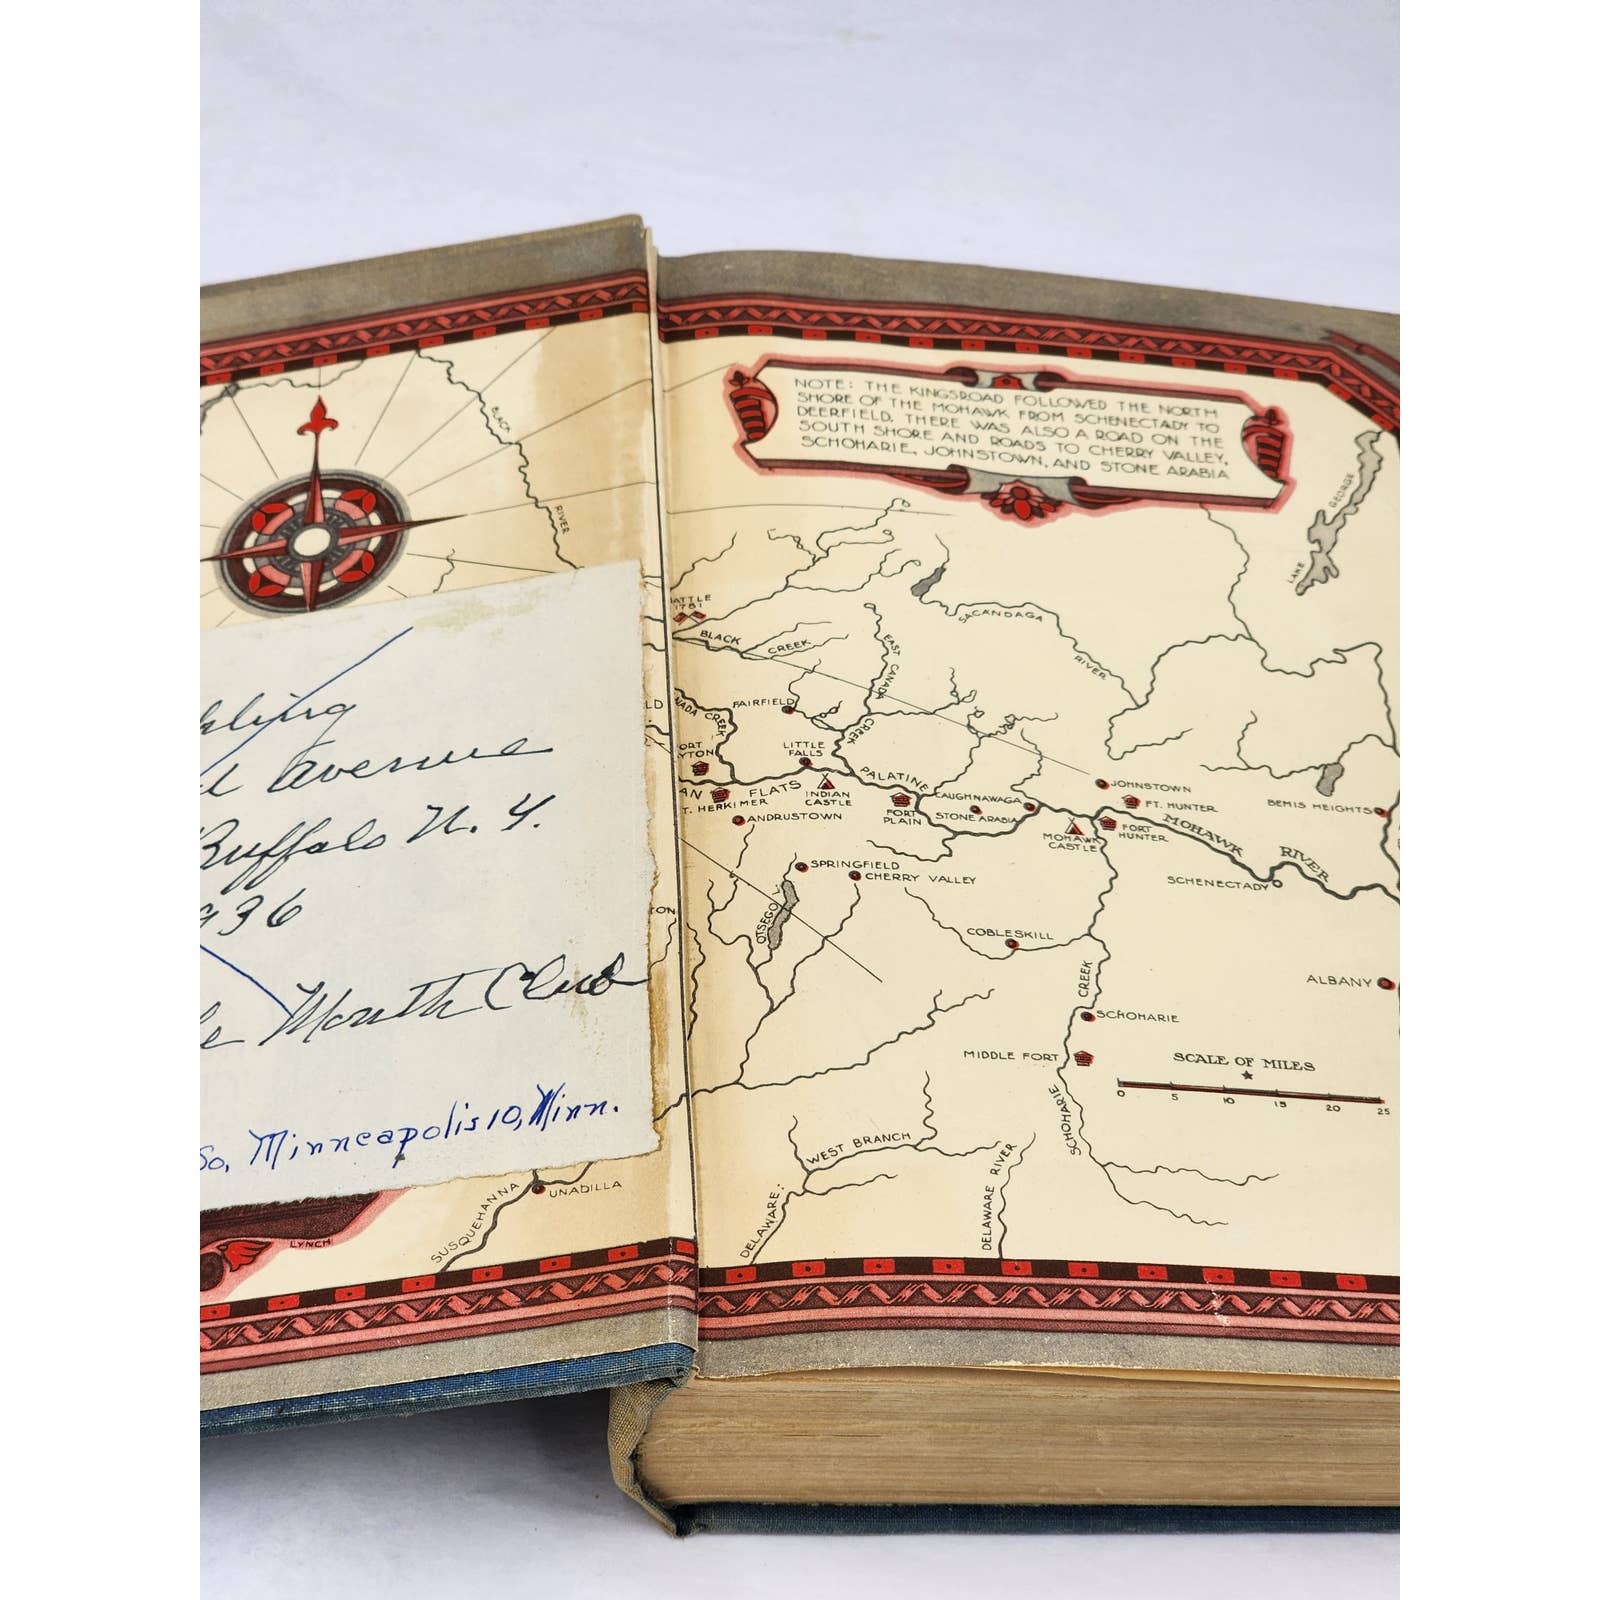 BLACK
RIVER
Avenue
Buffalo N. Y.
936
Month Club
So, Minneapolis 10, Minn.
UNADILLA
SUSQUEHANNA
LYNCH
NOTE: THE KINGSROAD FOLLOWED THE NORTH
SHORE OF THE MOHAWK FROM SCHENECTADY TO
DEERFIELD. THERE WAS ALSO A ROAD ON THE
SOUTH SHORE AND ROADS TO CHERRY VALLEY,
SCHOHARIE, JOHNSTOWN, AND STONE ARABIA
LAKE GEORGE
1781
BLACK CREEK
SACANDAGA RIVER
EAST CANADA CREEK
FAIRFIELD
CREEK
LITTLE
FALLS
PALATINE
FLATS
INDIAN
CASTLE
HERKIMER
FORT
PLAIN
CAUGHNAWAGA
STONE ARABIA
JOHNSTOWN
FT. HUNTER
BEMIS HEIGHTS
ANDRUSTOWN
MOHAWK
CASTLE
FORT
HUNTER
MOHAWK RIVER
SPRINGFIELD
CHERRY VALLEY
SCHENECTADY
OTSEGO L.
COBLESKILL
ALBANY
SCHOHARIE CREEK
SCHOHARIE
MIDDLE FORT
SCALE OF MILES
0 5 10 15 20 25
WEST BRANCH
DELAWARE:
DELAWARE RIVER